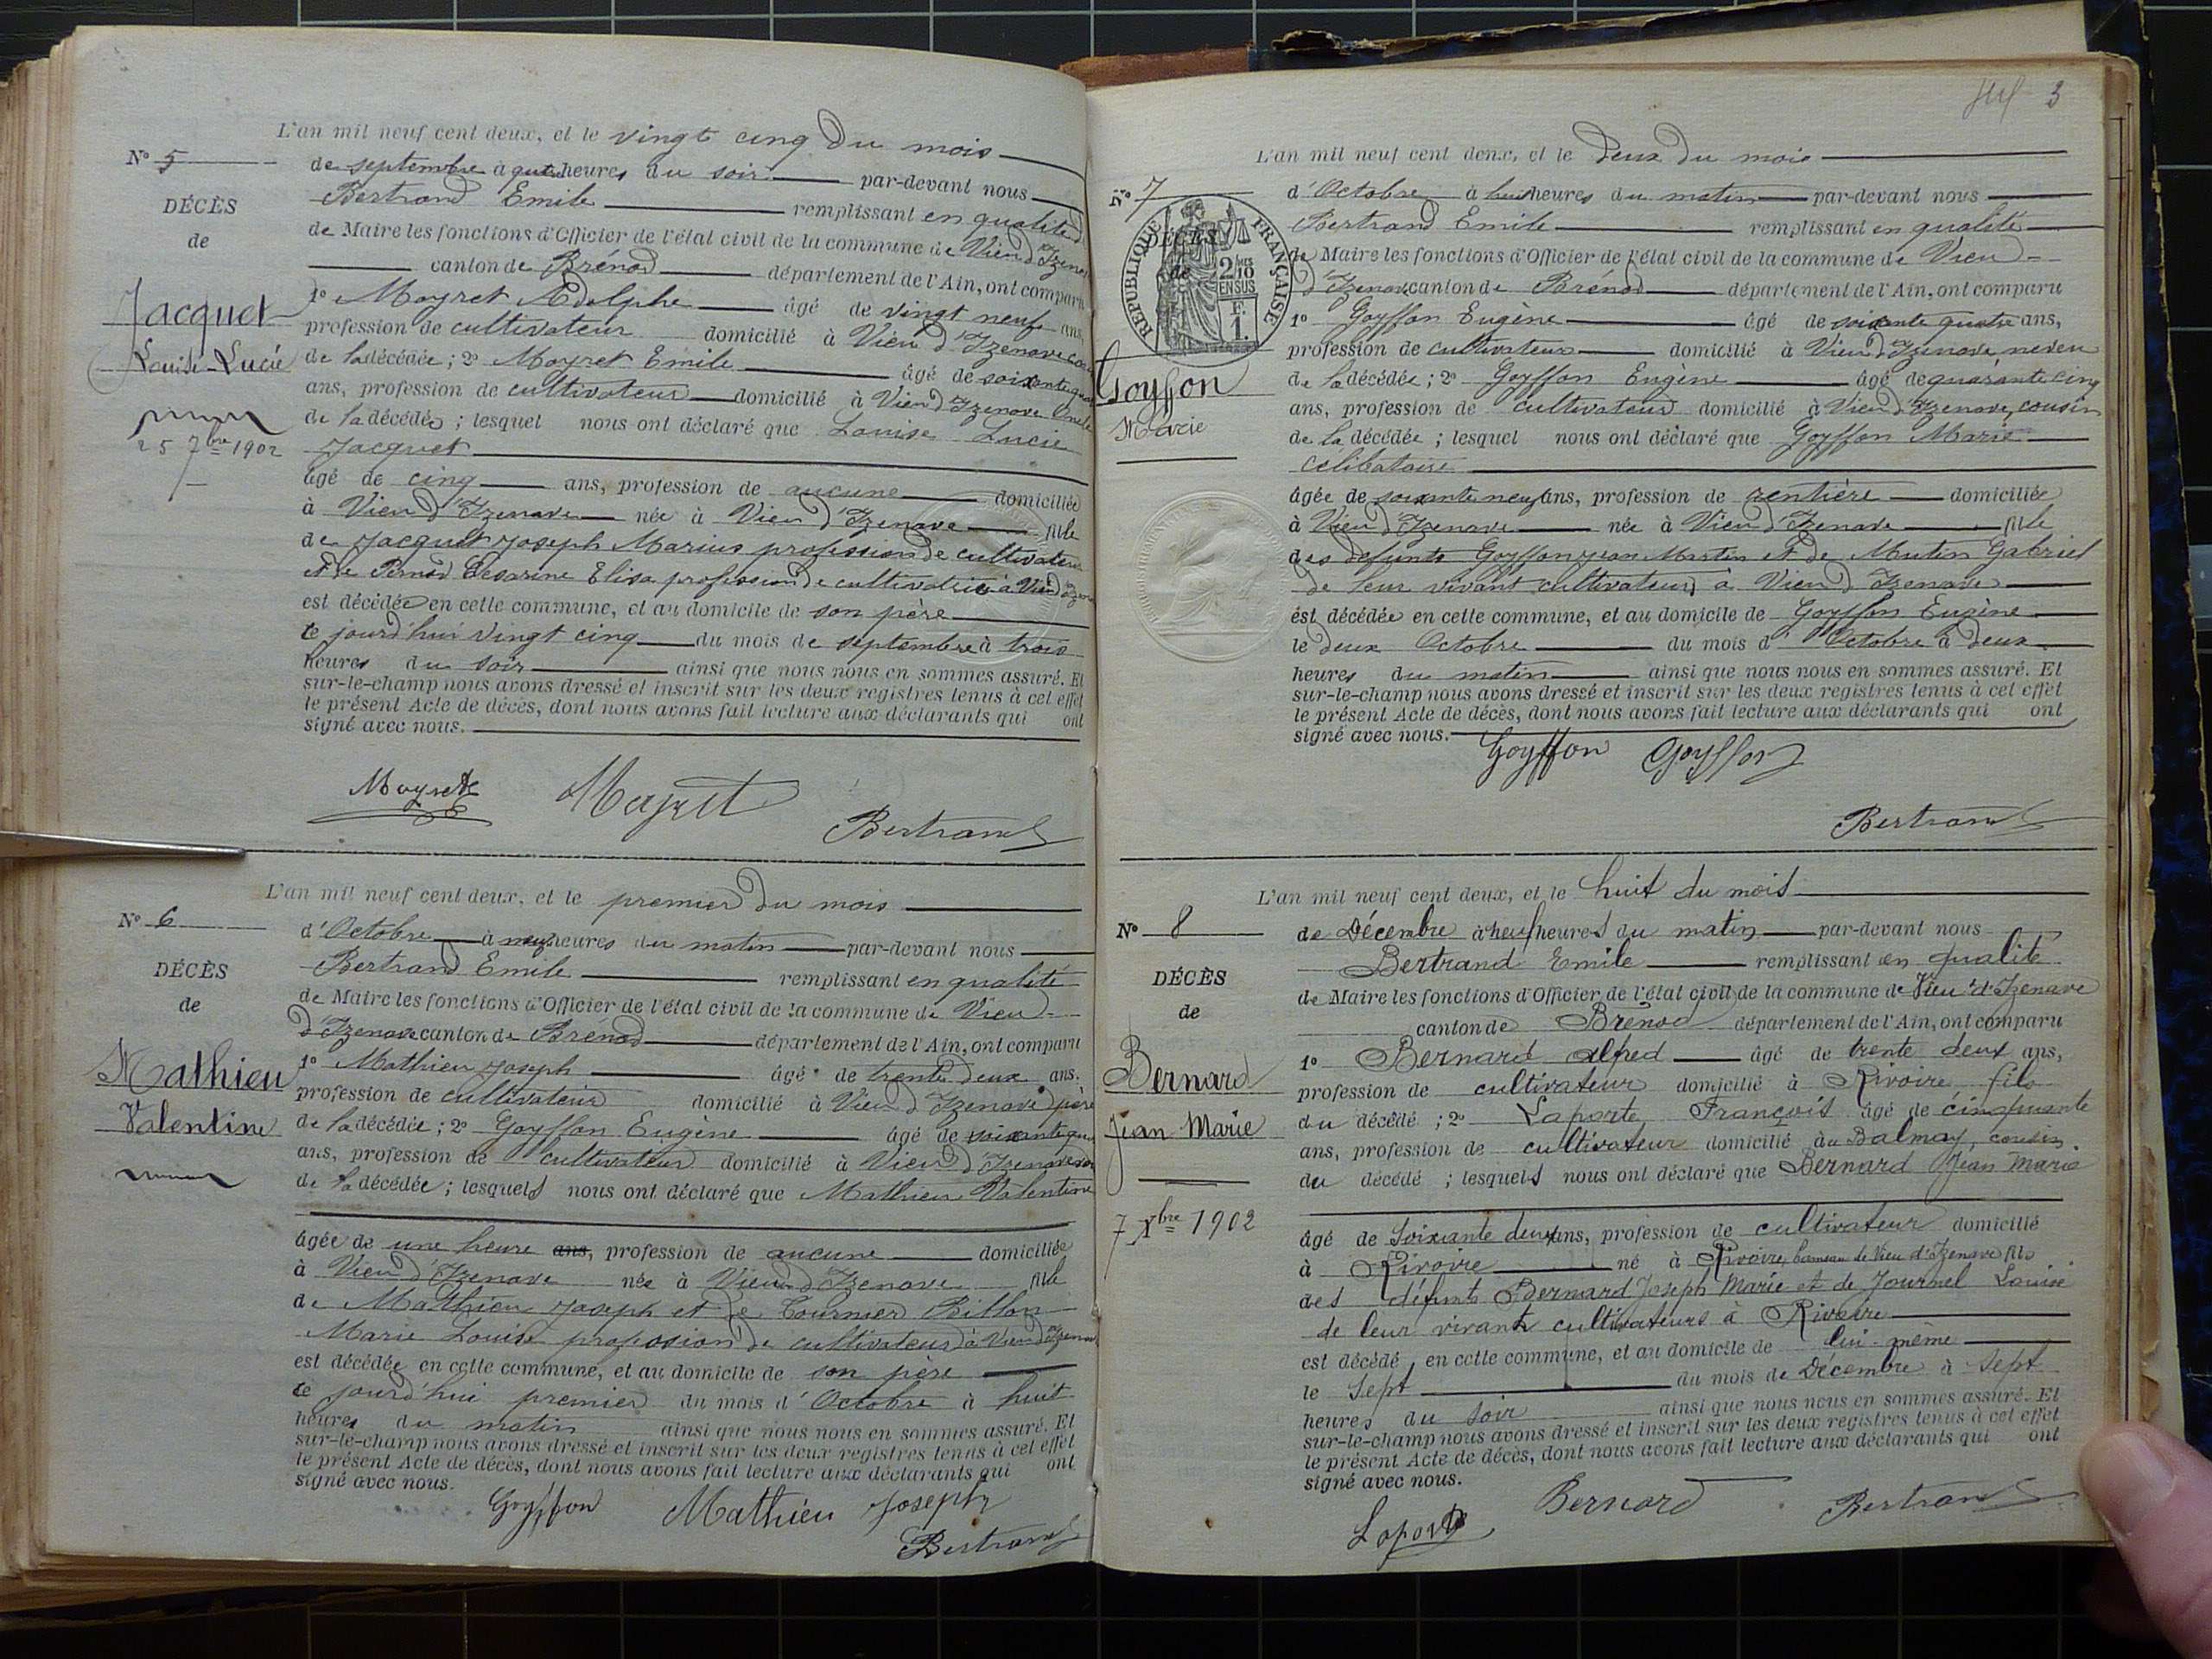 L'an mil neuf cent deux, et le vingt cinq du mois
N° 5
de septembre à quatre heures du soir par-devant nous
DÉCÈS
Bertrand Emile remplissant en qualité
de
de Maire les fonctions d'Officier de l'état civil de la commune de Vieu d'Izenave
canton de Brénod département de l'Ain, ont comparu
Jacquet
1° Moyret Adolphe âgé de vingt neuf ans,
profession de cultivateur domicilié à Vieu d'Izenave
Louise Lucie
de la décédée ; 2° Moyret Emile âgé de soixante
ans, profession de cultivateur domicilié à Vieu d'Izenave
de la décédée ; lesquel nous ont déclaré que Louise Lucie
25 7bre 1902
Jacquet
âgé de cinq ans, profession de aucune domiciliée
à Vieu d'Izenave née à Vieu d'Izenave fille
de Jacquet Joseph Marius profession de cultivateur
et de Pernod Césarine Elisa profession de cultivatrice à Vieu d'Izenave
est décédée en cette commune, et au domicile de son père
ce jourd'hui vingt cinq du mois de septembre à trois
heures du soir ainsi que nous nous en sommes assuré. Et
sur-le-champ nous avons dressé et inscrit sur les deux registres tenus à cet effet
le présent Acte de décès, dont nous avons fait lecture aux déclarants qui ont
signé avec nous.
Moyret Moyret
Bertrand
L'an mil neuf cent deux, et le premier du mois
N° 6
d'Octobre à neuf heures du matin par-devant nous
DÉCÈS
Bertrand Emile remplissant en qualité
de
de Maire les fonctions d'Officier de l'état civil de la commune de Vieu
d'Izenave canton de Brénod département de l'Ain, ont comparu
Mathieu
1° Mathieu Joseph âgé de trente deux ans.
profession de cultivateur domicilié à Vieu d'Izenave père
Valentine
de la décédée ; 2° Goyffon Eugène âgé de soixante
ans, profession de cultivateur domicilié à Vieu d'Izenave
de la décédée ; lesquels nous ont déclaré que Mathieu Valentine
âgée de une heure ans, profession de aucune domiciliée
à Vieu d'Izenave née à Vieu d'Izenave fille
de Mathieu Joseph et de Tournier Billon
Marie Louise profession de cultivateur à Vieu d'Izenave
est décédée en cette commune, et au domicile de son père
ce jourd'hui premier du mois d'Octobre à huit
heures du matin ainsi que nous nous en sommes assuré. Et
sur-le-champ nous avons dressé et inscrit sur les deux registres tenus à cet effet
le présent Acte de décès, dont nous avons fait lecture aux déclarants qui ont
signé avec nous.
Goyffon Mathieu Joseph
Bertrand
3
L'an mil neuf cent deux, et le deux du mois
N° 7
d'Octobre à huit heures du matin par-devant nous
DÉCÈS
Bertrand Emile remplissant en qualité
de
RÉPUBLIQUE FRANÇAISE
2/10 EN SUS
F. 1.
de Maire les fonctions d'Officier de l'état civil de la commune de Vieu
d'Izenave canton de Brénod département de l'Ain, ont comparu
1° Goyffon Eugène âgé de soixante quatre ans,
profession de cultivateur domicilié à Vieu d'Izenave, neveu
Goyffon
de la décédée ; 2° Goyffon Eugène âgé de quarante cinq
ans, profession de cultivateur domicilié à Vieu d'Izenave, cousin
Marie
de la décédée ; lesquel nous ont déclaré que Goyffon Marie
célibataire
âgée de soixante neuf ans, profession de rentière domiciliée
à Vieu d'Izenave née à Vieu d'Izenave fille
des défunts Goyffon Jean Martin et de Mutin Gabriel
de leur vivant cultivateurs à Vieu d'Izenave
est décédée en cette commune, et au domicile de Goyffon Eugène
le deux Octobre du mois d'Octobre à deux
heures du matin ainsi que nous nous en sommes assuré. Et
sur-le-champ nous avons dressé et inscrit sur les deux registres tenus à cet effet
le présent Acte de décès, dont nous avons fait lecture aux déclarants qui ont
signé avec nous.
Goyffon Goyffon
Bertrand
L'an mil neuf cent deux, et le huit du mois
N° 8
de Décembre à neuf heures du matin par-devant nous
Bertrand Emile remplissant en qualité
DÉCÈS
de Maire les fonctions d'Officier de l'état civil de la commune de Vieu d'Izenave
de
canton de Brénod département de l'Ain, ont comparu
1° Bernard Alfred âgé de trente deux ans,
Bernard
profession de cultivateur domicilié à Rivoire fils
du décédé ; 2° Laporte François âgé de cinquante
Jean Marie
ans, profession de cultivateur domicilié au Balmay, cousin
du décédé ; lesquels nous ont déclaré que Bernard Jean Marie
7 Xbre 1902
âgé de soixante deux ans, profession de cultivateur domicilié
à Rivoire né à Rivoire, hameau de Vieu d'Izenave fils
des défunts Bernard Joseph Marie et de Journel Louise
de leur vivant cultivateurs à Rivoire
est décédé en cette commune, et au domicile de lui-même
le sept du mois de Décembre à sept
heures du soir ainsi que nous nous en sommes assuré. Et
sur-le-champ nous avons dressé et inscrit sur les deux registres tenus à cet effet
le présent Acte de décès, dont nous avons fait lecture aux déclarants qui ont
signé avec nous.
Laporte Bernard Bertrand